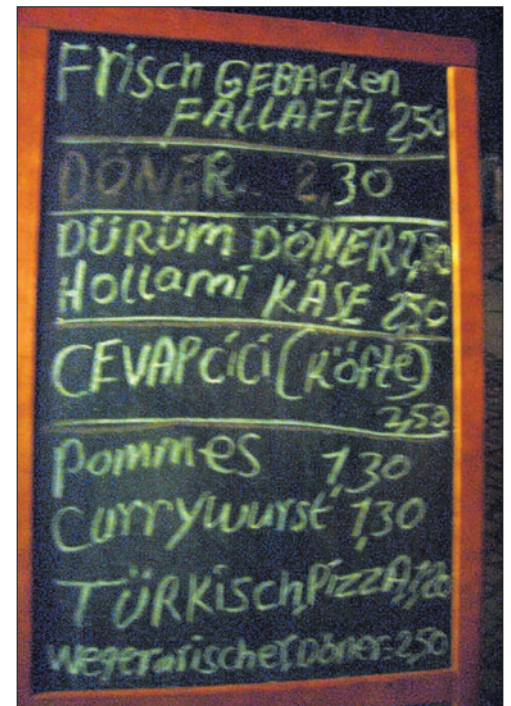 Frisch GEBACKen
FALLAFEL 2,50
DÖNER 2,30
DÜRÜM DÖNER
Hollami KÄSE 2,50
CEVAPCiCi (Köfte)
2,50
Pommes 1,30
Currywurst 1,30
TÜRKisch PizzA
wegetarischer Döner 2,50